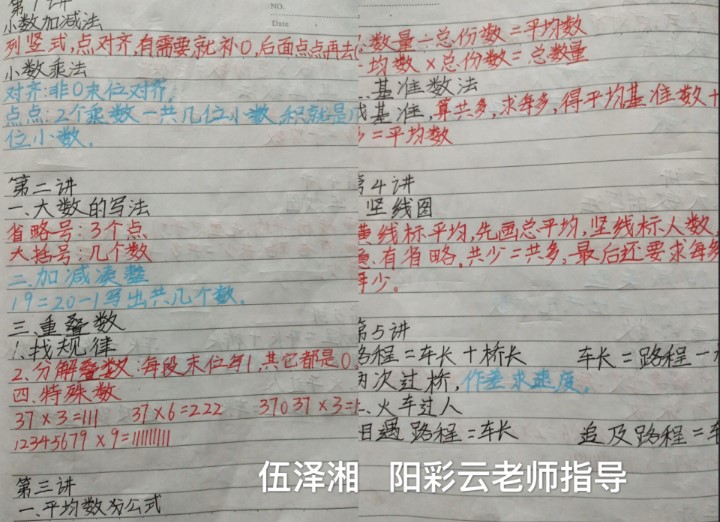 第1讲
NO.
Date
小数加减法
列竖式,点对齐,有需要就补0,后面点点再去
小数乘法
对齐:非0末位对齐,
点点:2个乘数一共几位小数,积就是几
位小数。
第二讲
一、大数的写法
省略号:3个点
大括号:几个数
二、加减凑整
19=20-1写出共几个数.
三、重叠数
1.找规律
2.分解叠数:每段末位写1,其它都是0.
四、特殊数
37×3=111 37×6=222 37037×3=
12345679×9=111111111
第三讲
一.平均数的公式
总数量÷总份数=平均数
平均数×总份数=总数量
二.基准数法
找基准,算共多,求每多,得平均基准数+
多=平均数
第4讲
竖线图
横线标平均,先画总平均,竖线标人数,
有省略.共少=共多.最后还要求每多
每少。
第5讲
路程=车长+桥长 车长=路程-
两次过桥,作差求速度.
二、火车过人
相遇路程=车长 追及路程=车
伍泽湘 阳彩云老师指导